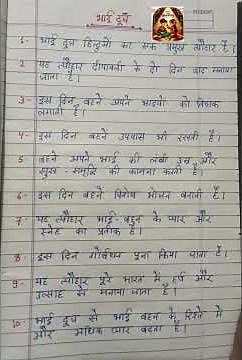 भाई दूज
1- भाई दूज हिन्दुओं का एक प्रमुख त्यौहार है।
2 यह त्यौहार दीपावली के दो दिन बाद मनाया
जाता है।
3- इस दिन बहनें अपने भाइयों को तिलक
लगाती हैं।
4- इस दिन बहनें उपवास भी रखती हैं।
5 बहनें अपने भाई की लंबी उम्र और
सुख-समृद्धि की कामना करती हैं।
6- इस दिन बहनें विशेष भोजन बनाती हैं।
7- यह त्यौहार भाई-बहन के प्यार और
स्नेह का प्रतीक है।
8- इस दिन गोवर्धन पूजा किया जाता है।
9- यह त्यौहार पूरे भारत में हर्ष और
उत्साह से मनाया जाता है।
10- भाई दूज से भाई बहन के रिश्ते में
और अधिक प्यार बढ़ता है।